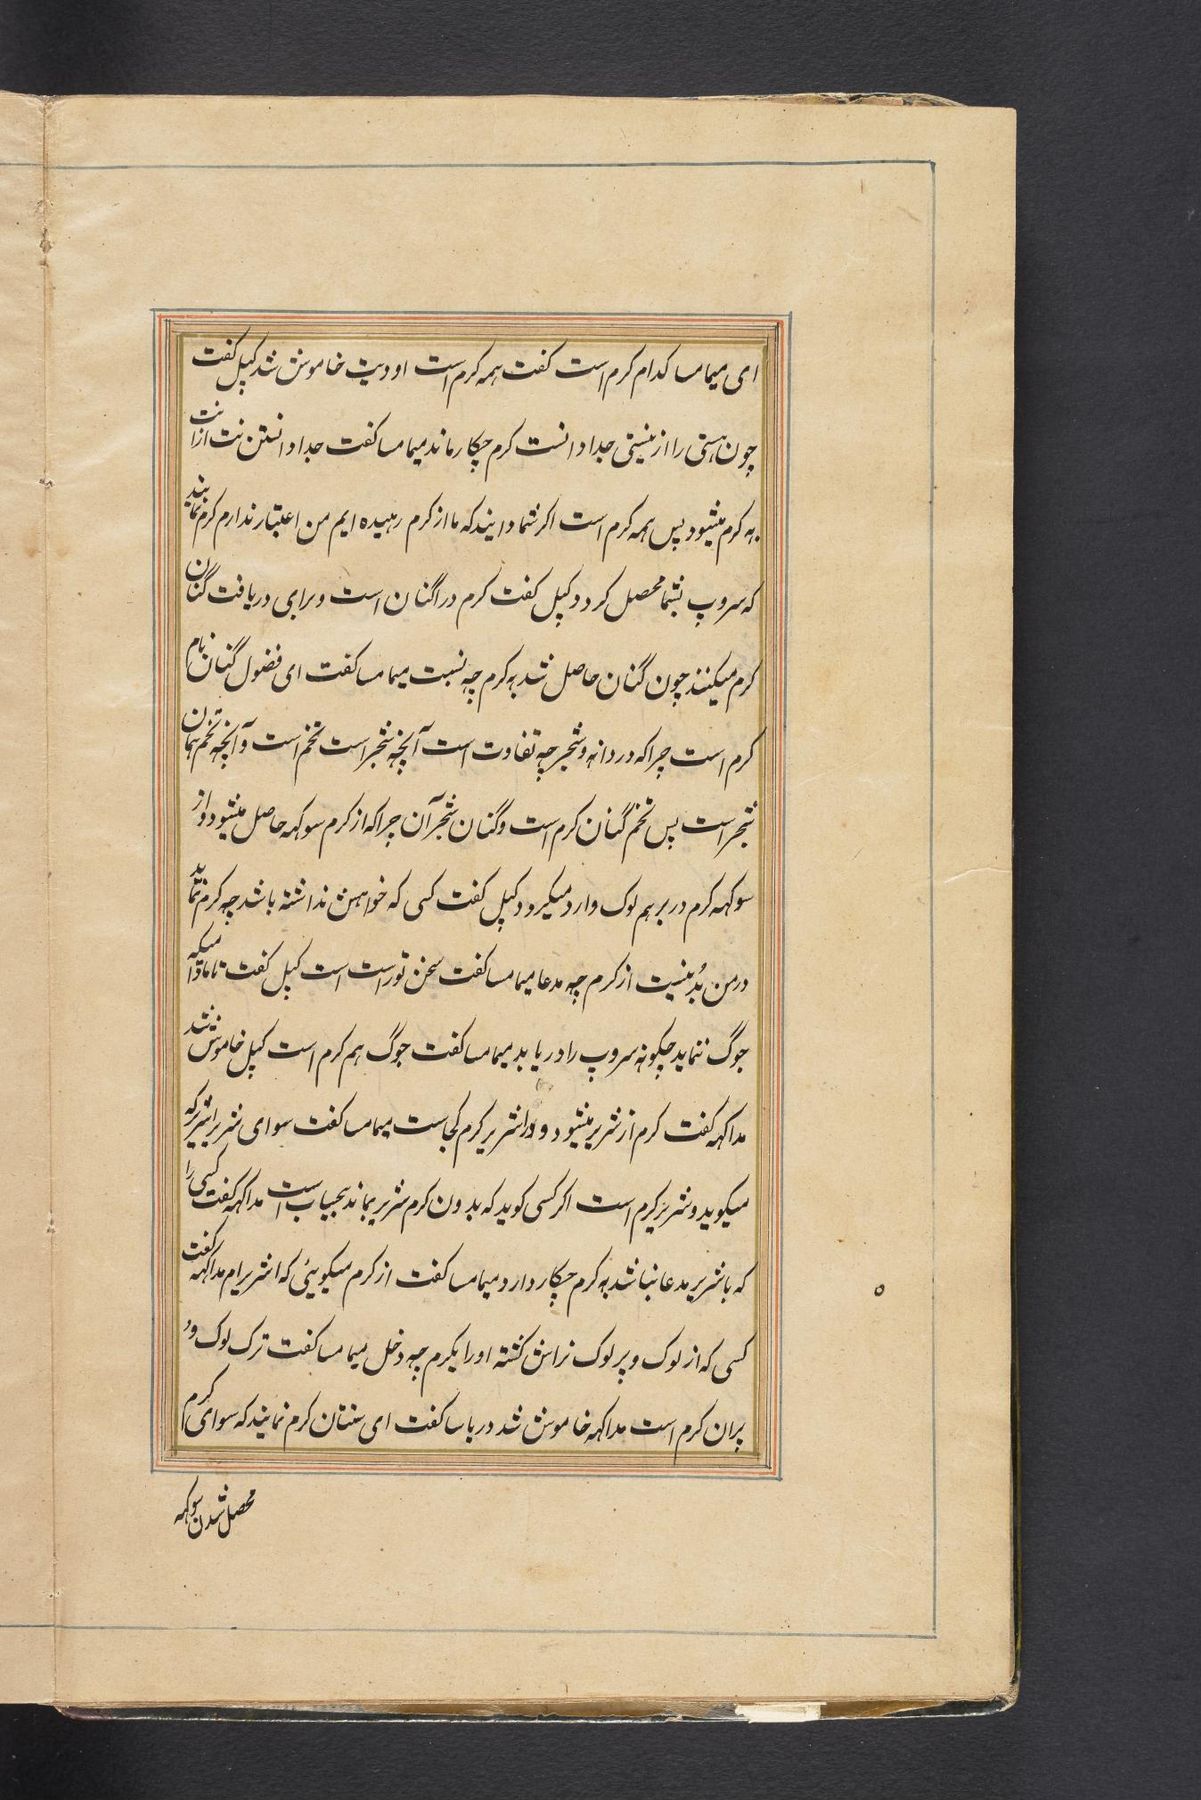 ای میماسا کدام کرم است گفت همه کرم است اودیت خاموش شد کپل گفت
چون هستی را از نیستی جدا دانست کرم چکار ماند میماسا گفت جدا دانستن نت از انت
به کرم میشود پس همه کرم است اکر شما دانید که ما از کرم رهیده ایم من اعتبار ندارم کرم نمایند
که سروپ بشما محصل کردد کپل گفت کرم در اگنان است و برای دریافت گنان
کرم میکنند چون گنان حاصل شد به کرم چه نسبت میماسا گفت ای فضول گنان نام
کرم است چرا که در دانه و شجر چه تفاوت است آنچه شجر است تخم است و آنچه تخم همان
شجر است پس تخم گنان کرم است و گنان شجر آن چرا که از کرم سوکهه حاصل میشود و از
سوکهه کرم در برهم لوک وارد میگیرود کپل گفت کسی که خواهش نداشته باشد چه کرم نماید
در من بُد نیست از کرم چه مدعا میماسا گفت سخن تو راست است کپل گفت تا مادامیکه
جوگ ننماید چکونه سروپ را دریابد میماسا گفت جوگ هم کرم است کپل خاموش شد
مداکهه گفت کرم از شریر میشود و در اشریر کرم کجاست میماسا گفت سوای شریر اشریر که
میکوید و شریر کرم است اکر کسی کوید که بدون کرم شریر بماند بیجاب است مداکهه گفت کسی را
که با شریر مدعا نباشد به کرم چکار دارد میماسا گفت از کرم میکوییٔ که اشریرام مداکهه گفت
کسی که از لوک و پرلوک نراش کشته او را بکرم چه دخل میماسا گفت ترک لوک و
پران کرم است مداکهه خاموش شد درباسا گفت ای سنتان کرم نمایند که سوای کرم
محصل شدن سوکهه